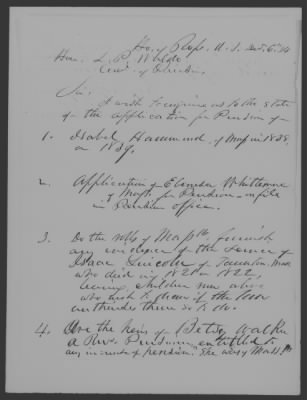 Ho. of Reps. U. S. Dec. 6. 54
Hon. L. P. Waldo
Com. of Pensions,
Sir,
I wish to inquire as to the state
of the application for Pension of
1. Isabel Hammond, of Mass in 1838,
or 1839.
2. Application of Ebenezer Whittemore
of Mass. for Pension on file
in Pension office.
3. Do the rolls of Massts furnish
any evidence of the service of
Isaac Lincoln of Taunton, Mass
who died in 1820 or 1822,
leaving children now alive
who wish to know if the law
entitles them to
4. Are the heirs of Betsy Walker
a Revy Pensioner, entitled to
any of pension. She was of Mass